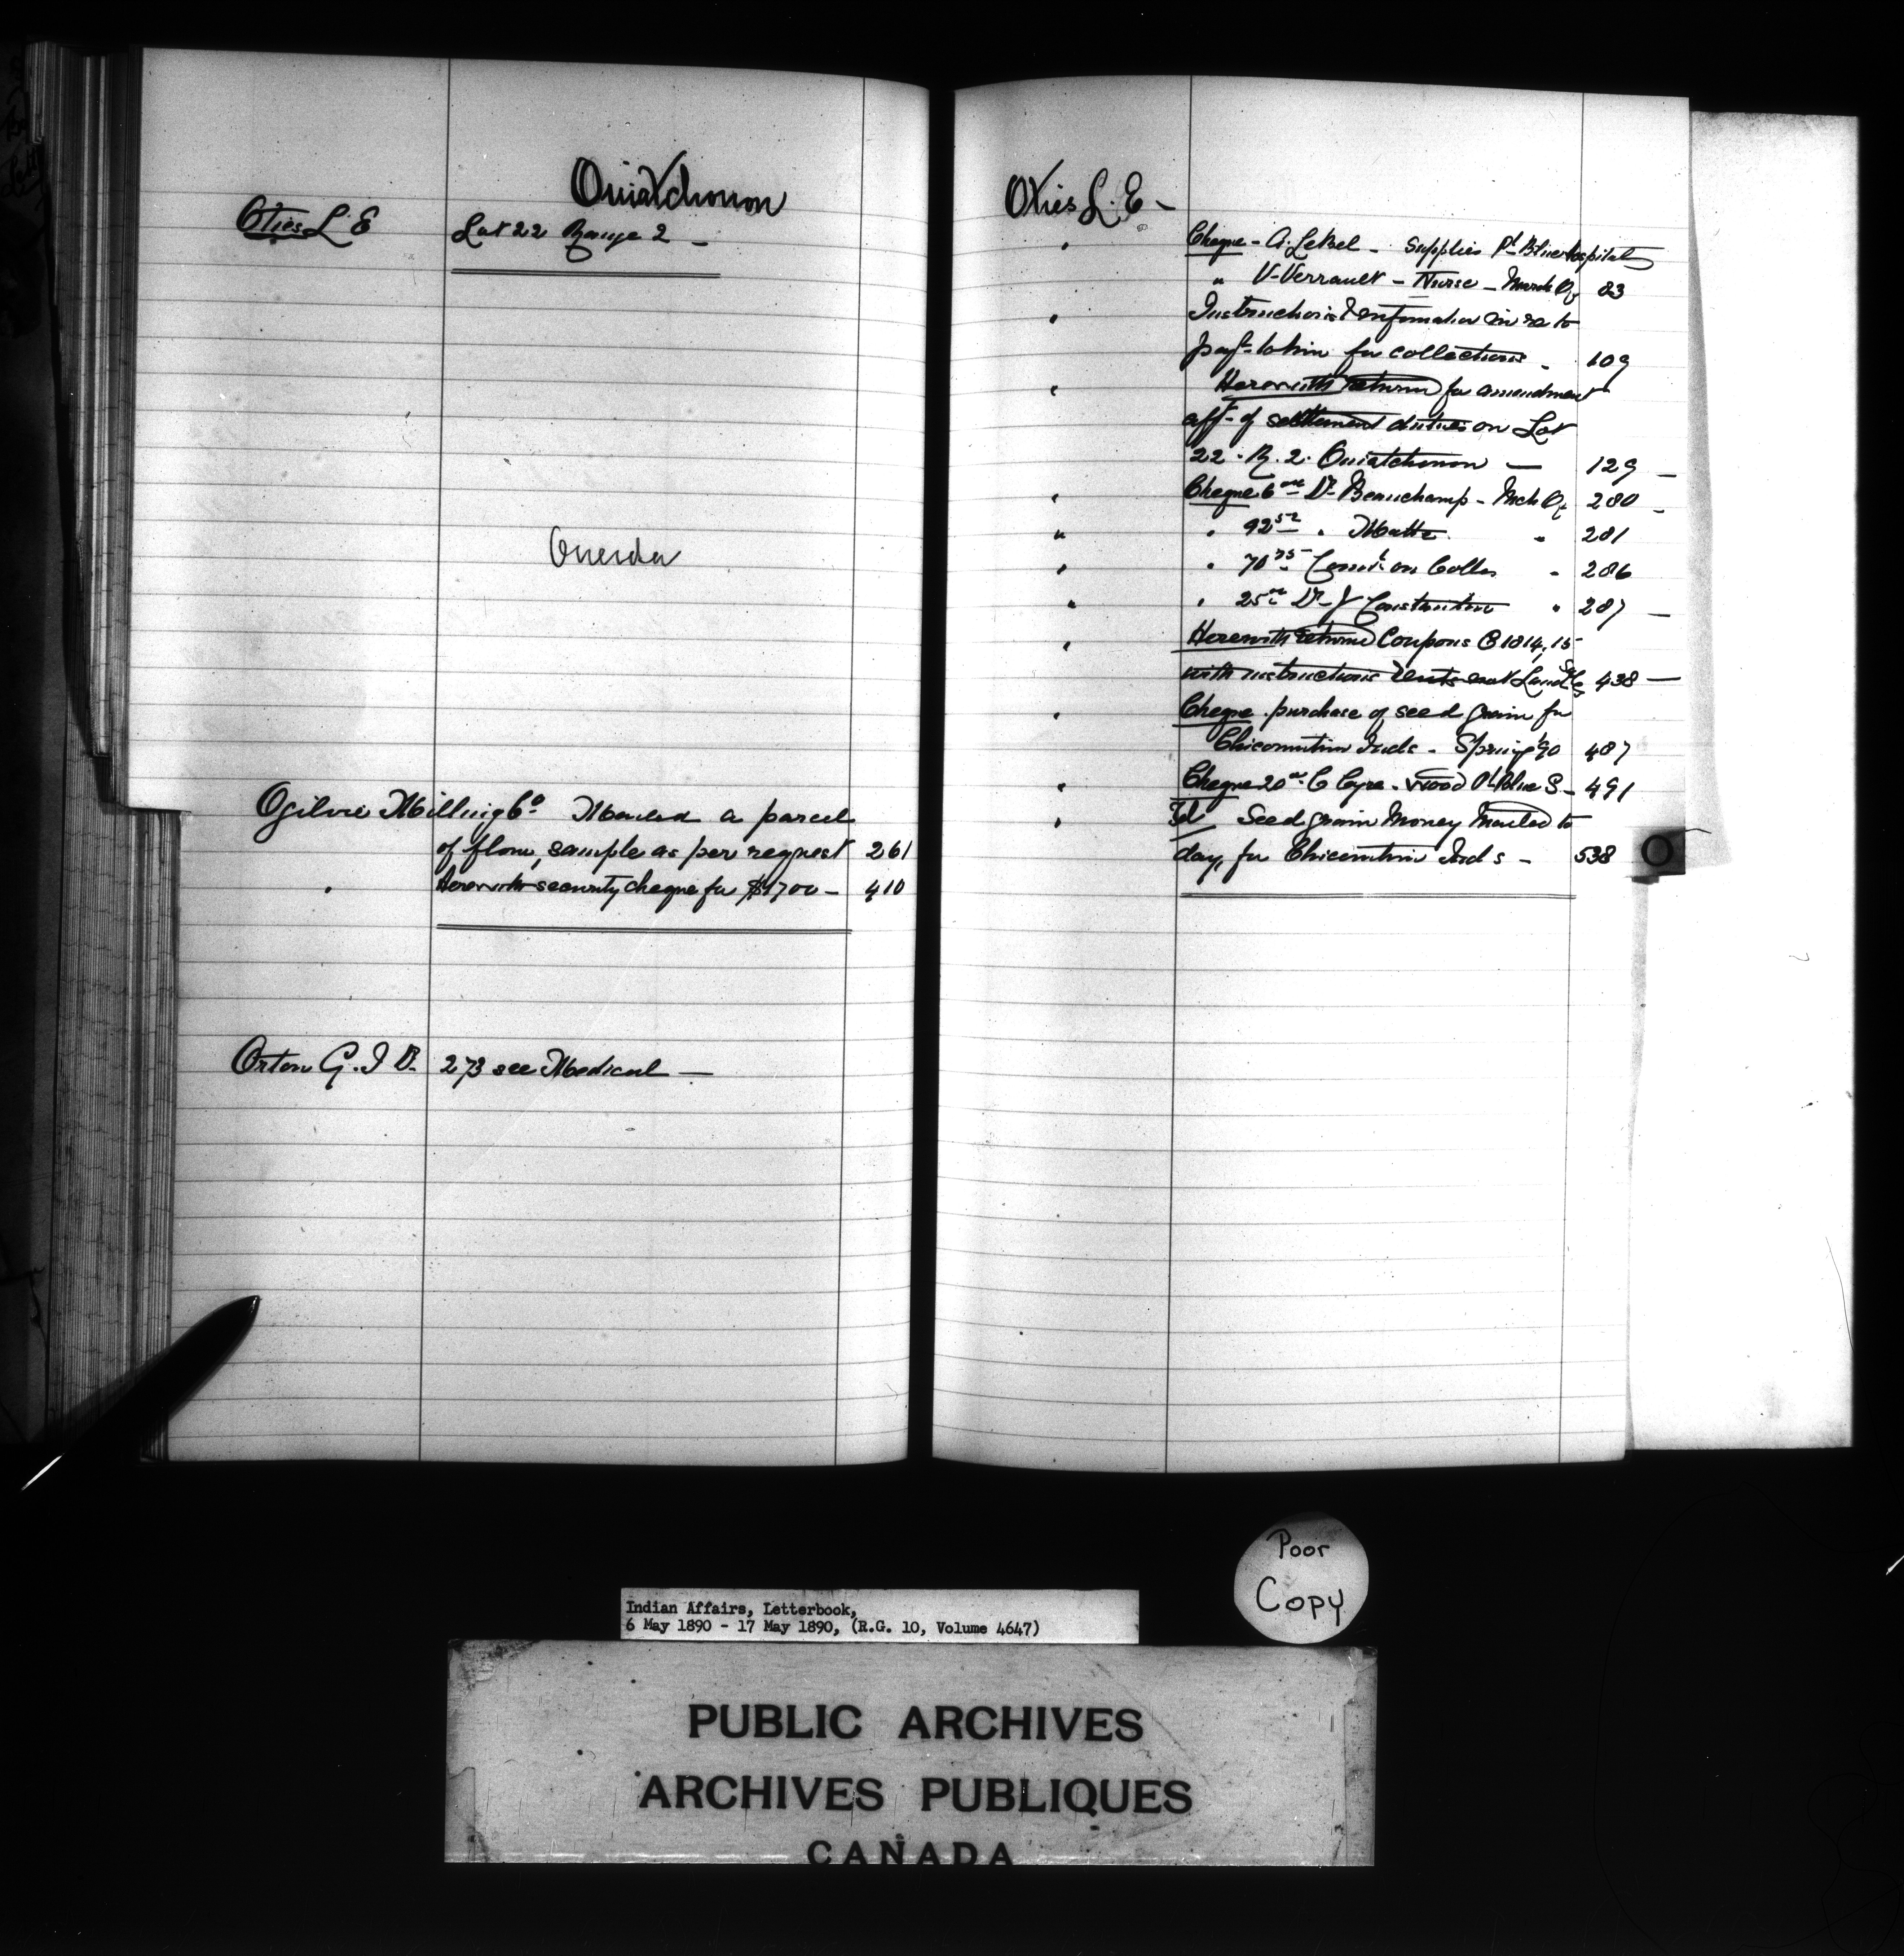 Ouiatchouan
Otis L. E Lot 22 Range 2 –
Oneida
Ogilvie Milling Co. Mailed a parcel
of flour, sample as per request 261
" Herewith security cheque for $1700 – 410
Orton G. I D. 273 see Medical –
Otis L. E –
" Cheque – A. LeBel – Supplies Pt Blue Hospital
" V. Verrault – Nurse – March Qr 83
" Instructions & information in re to
payt to him for collections – 109
" Herewith returned for amendment
afft of settlement duties on Lot
22. R. 2. Ouiatchouan – 129 –
" Cheque 6 00 Dr Beauchamp – Mch Qr 280 –
" " 92 52 " Matte " 281
" " 70 75 Comn on Colln " 286
" " 25 00 Dr J Constantin " 287 –
" Herewith returned Coupons C 1814, 15
with instructions Land Sales 438 –
" Cheque purchase of seed grain for
Chicoutimi Inds – Spring '90 487
" Cheque 20 00 C Cyre – wood Pt Blue S – 491
" Tel Seed grain Money Mailed to
day, for Chicoutimi Inds – 538
Poor
Copy
Indian Affairs, Letterbook,
6 May 1890 - 17 May 1890, (R.G. 10, Volume 4647)
PUBLIC ARCHIVES
ARCHIVES PUBLIQUES
CANADA